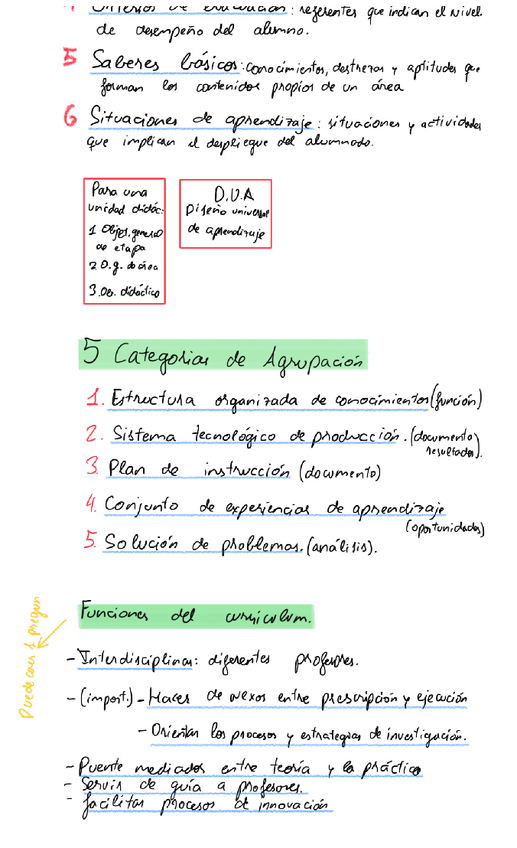 Criterios de evaluación: referentes que indican el nivel
de desempeño del alumno.
5 Saberes básicos: conocimientos, destrezas y aptitudes que
forman los contenidos propios de un área
6 Situaciones de aprendizaje: situaciones y actividades
que implican el despliegue del alumnado.
Para una
unidad didác:
1 Objet. general
de etapa
2 O.g. de área
3 Ob. didáctico
D.U.A
Diseño universal
de aprendizaje
5 Categorias de Agrupación
1. Estructura organizada de conocimientos (función)
2. Sistema tecnológico de producción. (documento
resultados).
3 Plan de instrucción (documento)
4. Conjunto de experiencias de aprendizaje
(oportunidades)
5. Solución de problemas. (análisis).
Funciones del curriculum.
Puede caer d pregun
- Interdisciplinar: diferentes profesores.
- (import.) - Hacer de nexos entre prescripción y ejecución
- Orientar los procesos y estrategias de investigación.
- Puente mediador entre teoría y la práctica
- Servir de guía a profesores.
- facilitar procesos de innovación